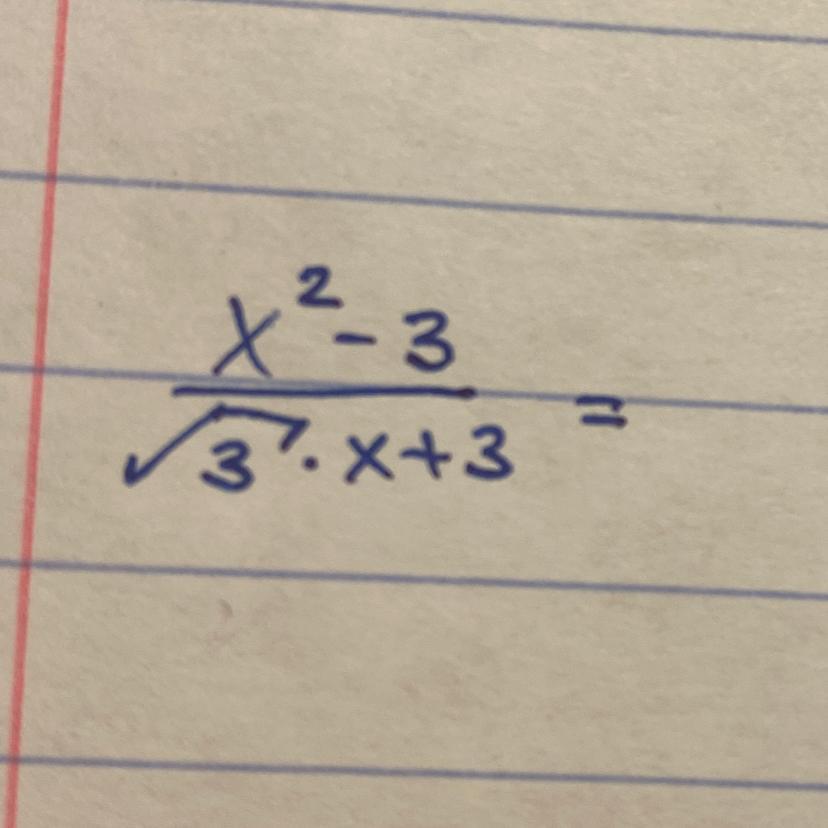 x² - 3
√3 · x + 3 =